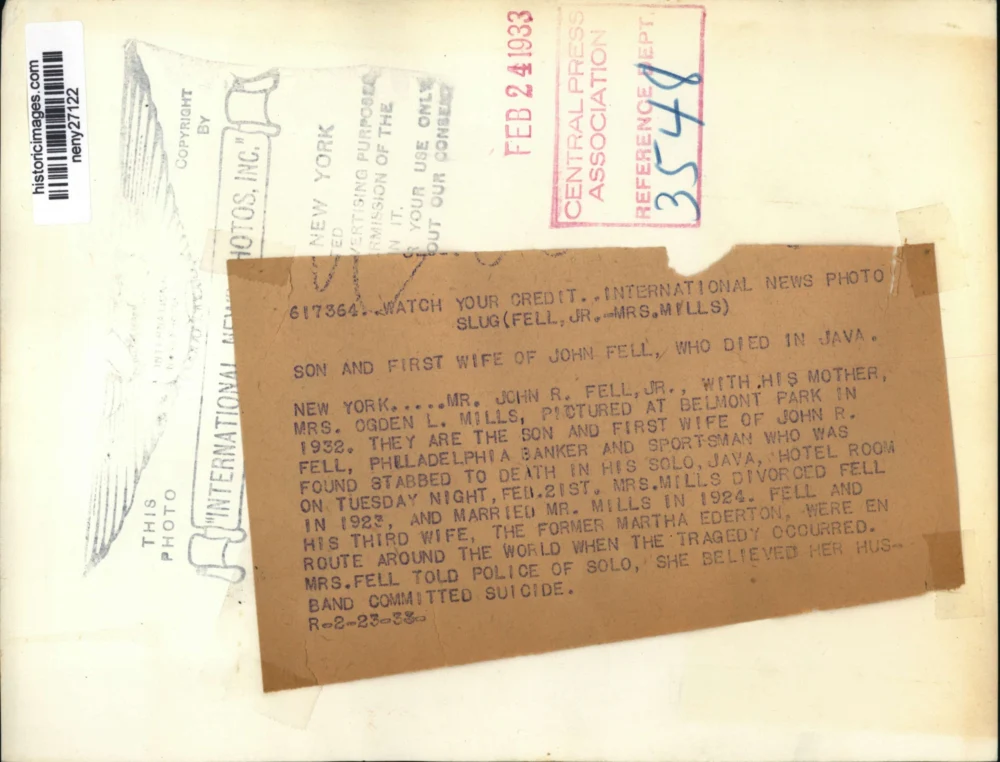 historicimages.com
neny27122
THIS
PHOTO
COPYRIGHT
BY
"INTERNATIONAL NEW
HOTOS, INC."
NEW YORK
ED
VERTISING PURPOSES
RMISSION OF THE
N IT.
R YOUR USE ONLY
OUT OUR CONSENT
FEB 24 1933
CENTRAL PRESS
ASSOCIATION
REFERENCE DEPT.
3548
617364. WATCH YOUR CREDIT..INTERNATIONAL NEWS PHOTO
SLUG(FELL,JR.-MRS.MILLS)
SON AND FIRST WIFE OF JOHN FELL, WHO DIED IN JAVA.
NEW YORK.....MR. JOHN R. FELL,JR., WITH HIS MOTHER,
MRS. OGDEN L. MILLS, PICTURED AT BELMONT PARK IN
1932. THEY ARE THE SON AND FIRST WIFE OF JOHN R.
FELL, PHILADELPHIA BANKER AND SPORTSMAN WHO WAS
FOUND STABBED TO DEATH IN HIS SOLO,JAVA, HOTEL ROOM
ON TUESDAY NIGHT,FEB.21ST. MRS.MILLS DIVORCED FELL
IN 1923, AND MARRIED MR. MILLS IN 1924. FELL AND
HIS THIRD WIFE, THE FORMER MARTHA EDERTON, WERE EN
ROUTE AROUND THE WORLD WHEN THE TRAGEDY OCCURRED.
MRS.FELL TOLD POLICE OF SOLO, SHE BELIEVED HER HUS-
BAND COMMITTED SUICIDE.
R-2-23-33-